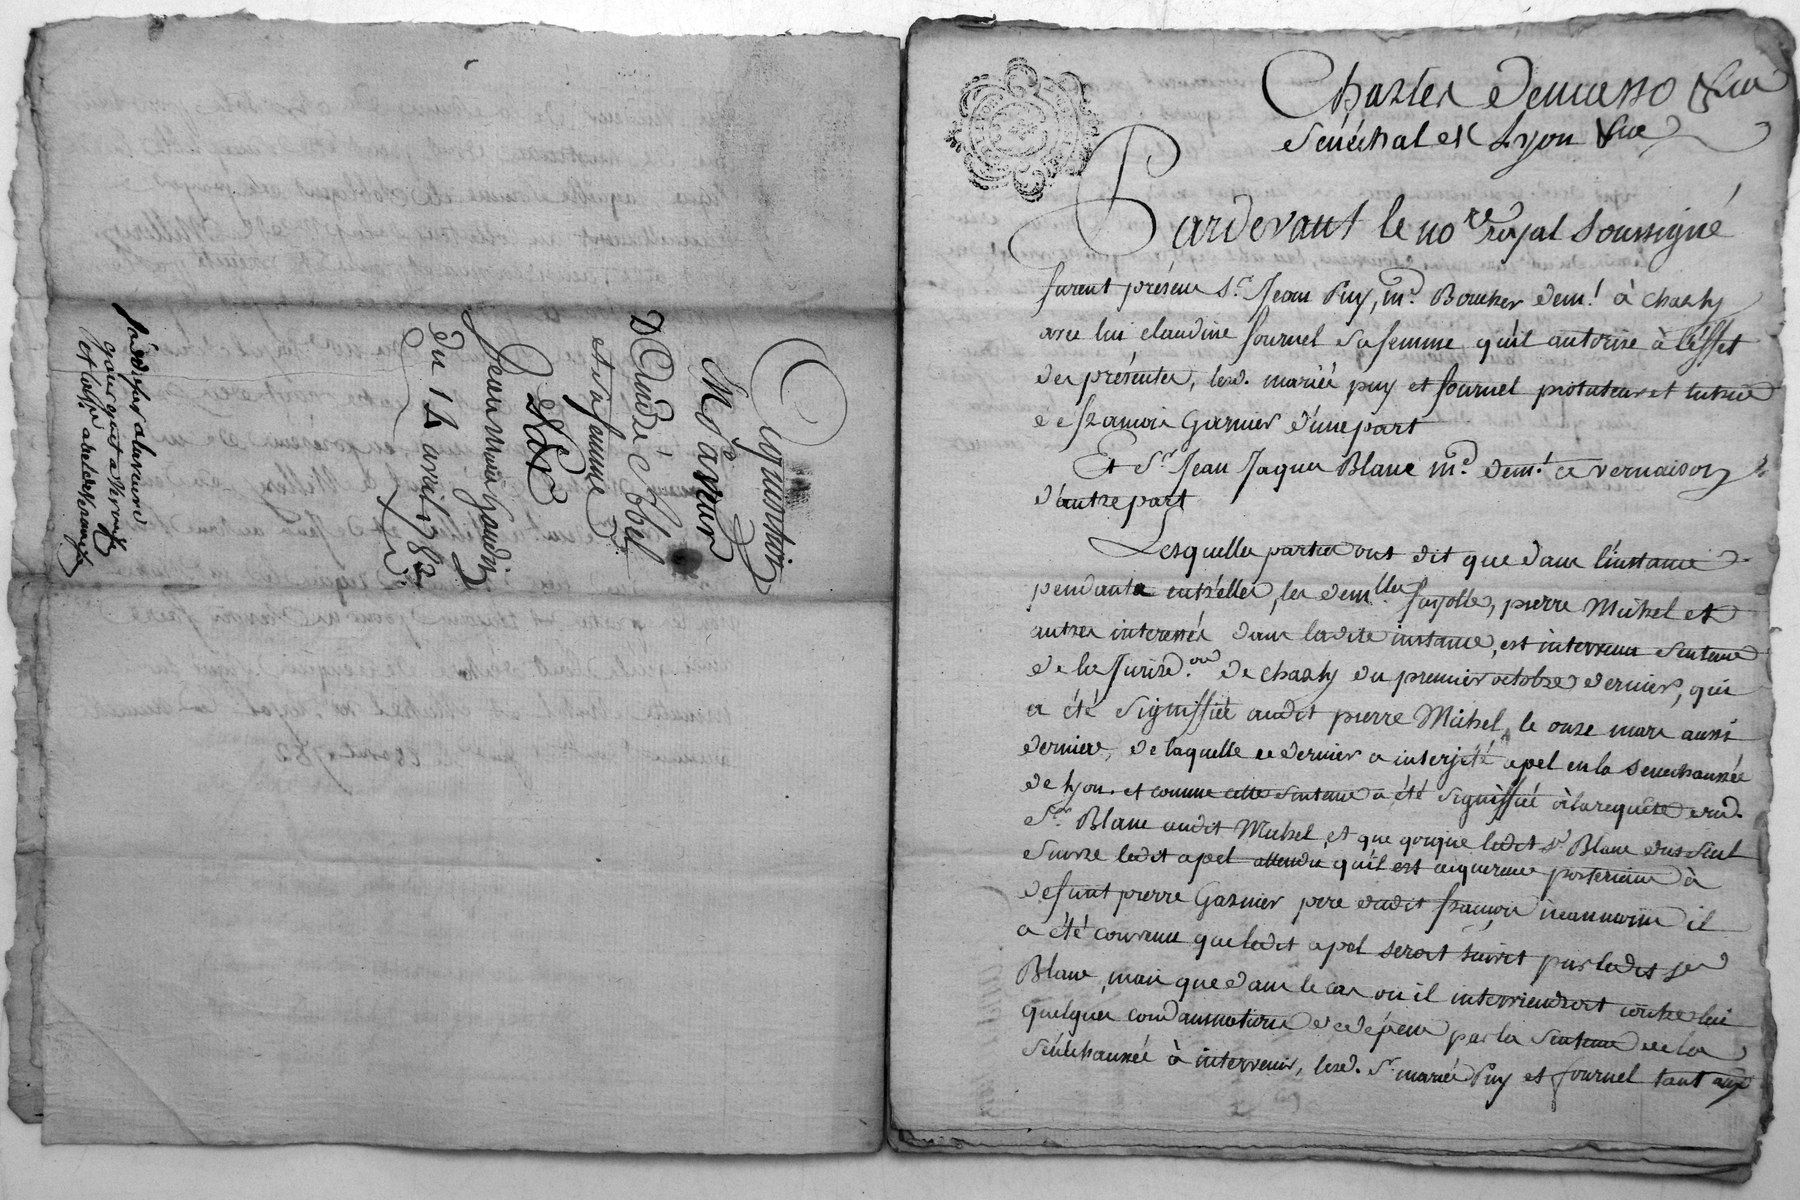 quittance
M.e faveur
De Claude Abel
et sa femme
De
Jean marie Gaudin
Du 14 avril 1782
Charles Demasso &ca
Sénéchal de Lyon &ca
Pardevant le no.re royal soussigné
furent présens S.r Jean Puy, m.d Boucher dem.t à Charly
avec lui claudine fournel sa femme qu'il autorise à l'éffet
des présentes, lesd. mariés puy et fournel protuteur et tutrice
de françois Garnier d'une part
Et S.r Jean Jaques Blanc m.d dem.t a vernaison
d'autre part
Lesquelles parties ont dit que dans l'instance
pendante entr'elles, les dem.lles fayolle, pierre Michel et
autres interessés dans ladite instance, est intervenu sentence
de la Jurisd.on de charly du premier octobre dernier, qui
a été signiffiée audit pierre Michel le onze mars aussi
dernier, de laquelle ce dernier a interjété apel en la senechaussée
de Lyon. et comme cette sentence a été signiffiée à la requête dud.
S.r Blanc audit Michel, et que quoique ledit S.r Blanc dut seul
suivre ledit apel attendu qu'il est acquereur posterieur à
defunt pierre Garnier pere dudit françois neanmoins il
a été convenu que ledit apel seroit suivit par ledit S.r
Blanc, mais que dans le cas où il interviendroit contre lui
quelques condamnations de dépens par la sentence de la
Sénéchaussée à intervenir, lesd. S.r mariés Puy et fournel tant aux